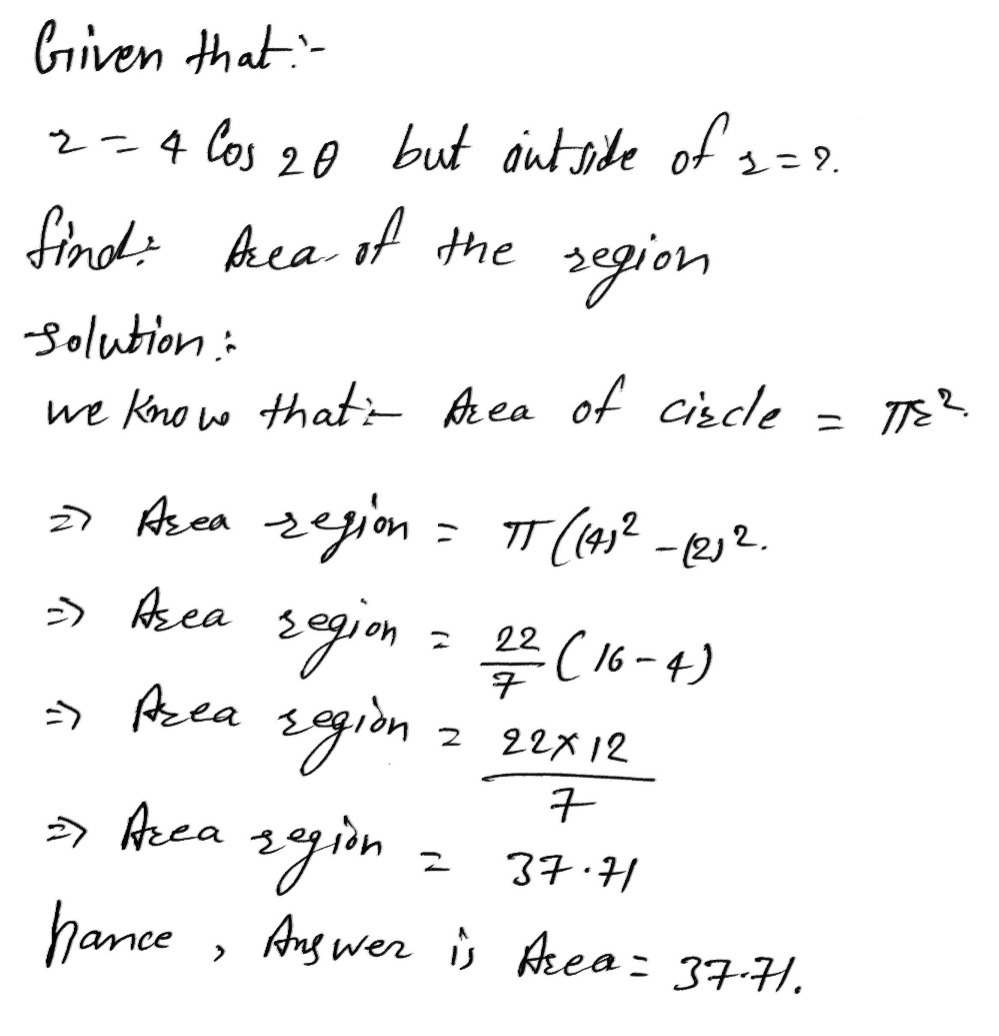 Given that:-
r = 4 Cos 2θ but outside of r = 2.
find: Area of the region
solution:
we know that:- Area of circle = πr².
=> Area region = π((4)² - (2)².
=> Area region = 22/7 (16-4)
=> Area region = 22×12/7
=> Area region = 37.71
hance, Answer is Area = 37.71.